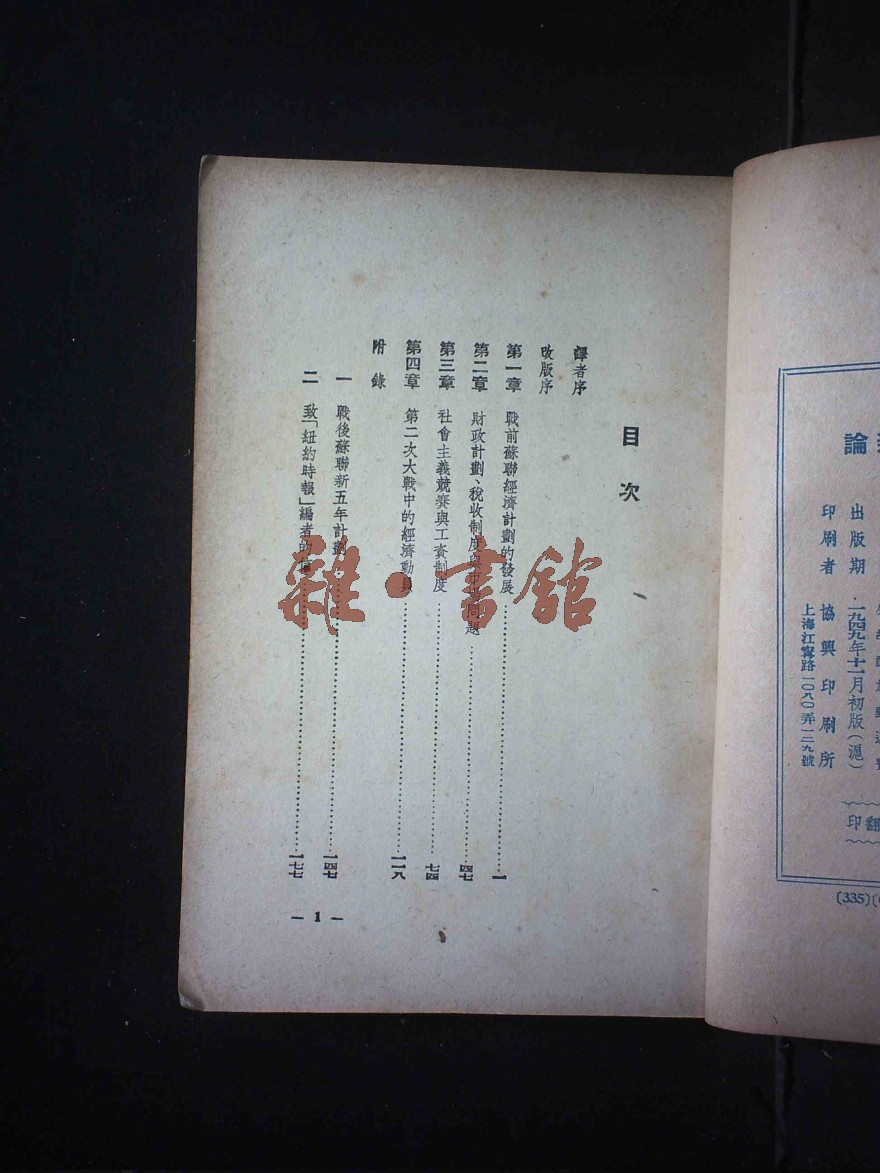 論
出版期．一九四九年十一月初版（滬）
印刷者　協興印刷所
上海江寗路一〇八〇弄一二九號
印翻
(335)(
目次
譯者序
改版序
第一章　戰前蘇聯經濟計劃的發展……一
第二章　財政計劃、稅收制度與市場問題……四七
第三章　社會主義競賽與工資制度……七四
第四章　第二次大戰中的經濟動員……一一八
附錄
一　戰後蘇聯新五年計劃……一四七
二　致「紐約時報」編者的信……一七七
— 1 —
雜·書館